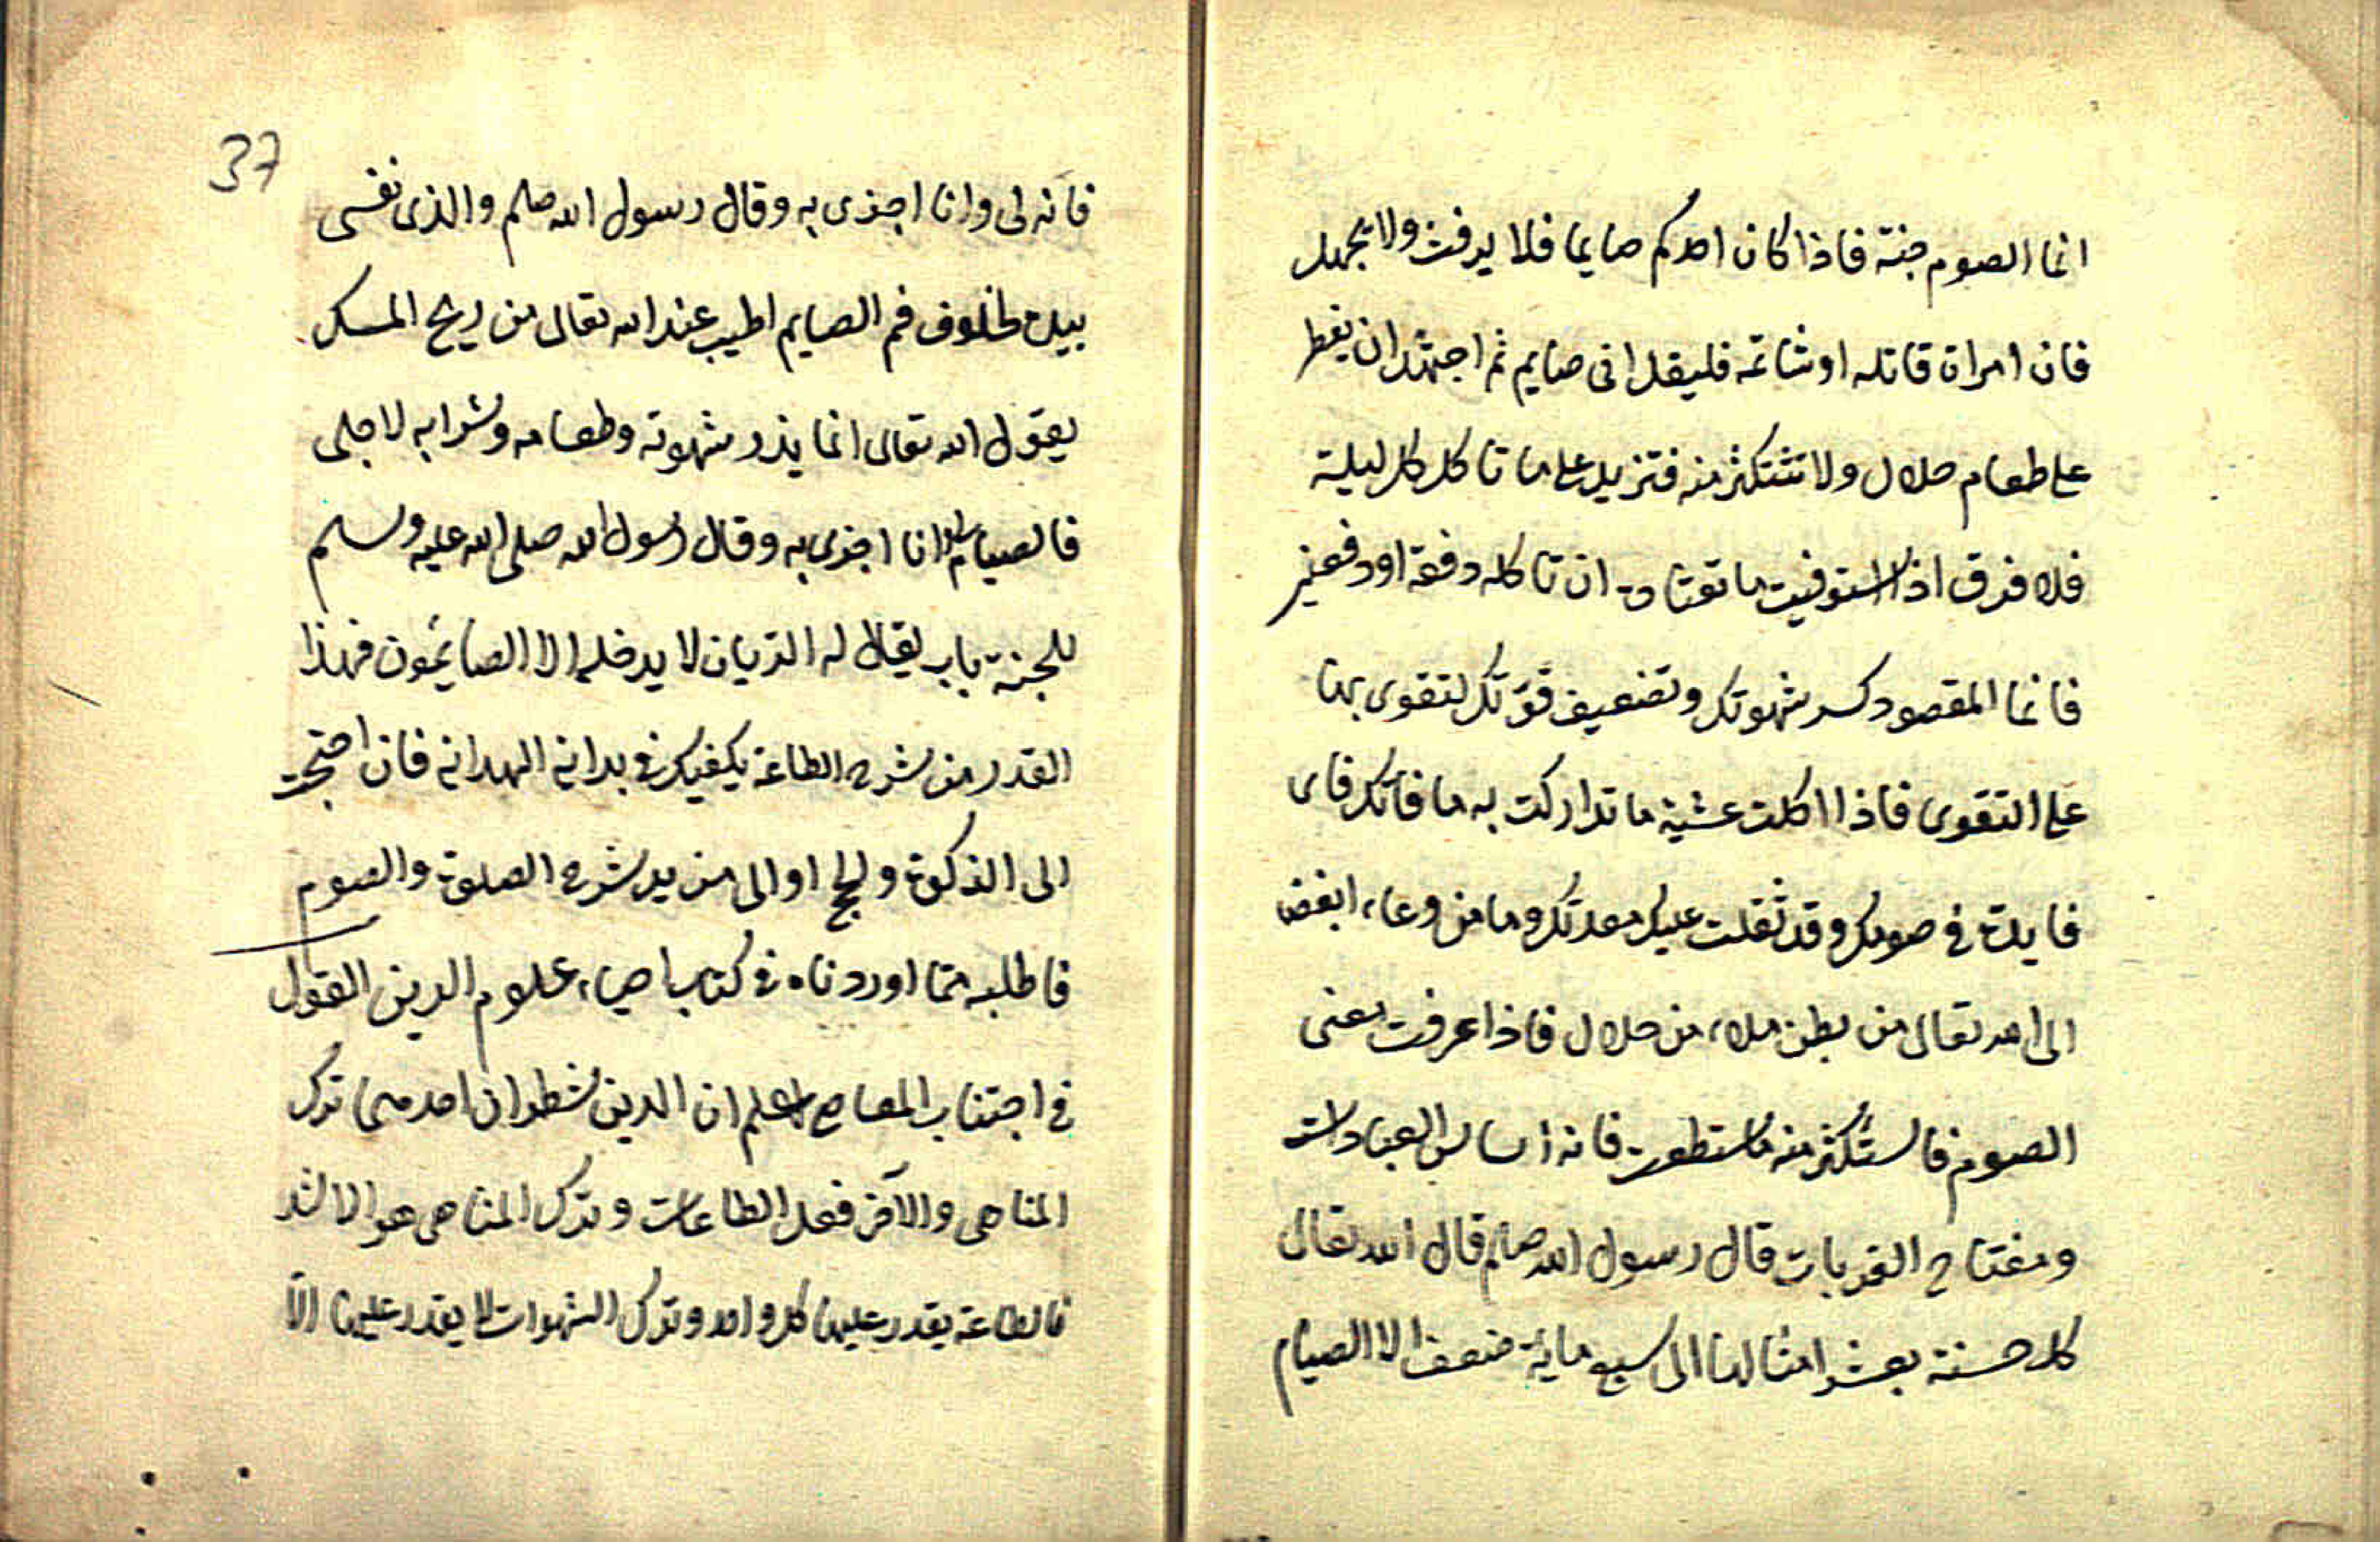 انما الصوم جنة فاذا كان احدكم صايما فلا يرفث ولا يجهل
فان امراة قاتله او شاتمه فليقل انى صايم ثم اجتهد ان يفطر
على طعام حلال ولا تستكثر منه فتزيد على ما تاكل كل ليلة
فلا فرق اذا استوفيت ما تعتاد ان تاكله دفعة او دفعتين
فانما المقصود كسر شهوتك وتضعيف قوتك لتقوى بها
على التقوى فاذا اكلت عشية ما تداركت به ما فاتك فاى
فايدة فى صومك وقد ثقلت عليك معدتك وما من وعاء ابغض
الى الله تعالى من بطن ملاء من حلال فاذا عرفت معنى
الصوم فاستكثر منه ما استطعت فانه اساس العبادات
ومفتاح القربات قال رسول الله صلعم قال الله تعالى
كل حسنة بعشر امثالها الى سبع ماية ضعف الا الصيام
37
فانه لى وانا اجزى به وقال رسول الله صلعم والذى نفسى
بيده لخلوف فم الصايم اطيب عند الله تعالى من ريح المسك
يقول الله تعالى انما يذر شهوته وطعامه وشرابه لاجلى
فالصيام لى وانا اجزى به وقال رسول الله صلى الله عليه وسلم
للجنة باب يقال له الريان لا يدخله الا الصائمون فهذا
القدر من شرح الطاعة يكفيك فى بداية الهداية فان احتجت
الى الزكوة والحج او الى مزيد شرح الصلوة والصوم
فاطلبه مما اوردناه فى كتاب احياء علوم الدين القول
فى اجتناب المعاصى اعلم ان الدين شطران احدهما ترك
المناهى والآخر فعل الطاعات وترك المناهى هو الاشد
فالطاعة يقدر عليها كل واحد وترك الشهوات لا يقدر عليها الا